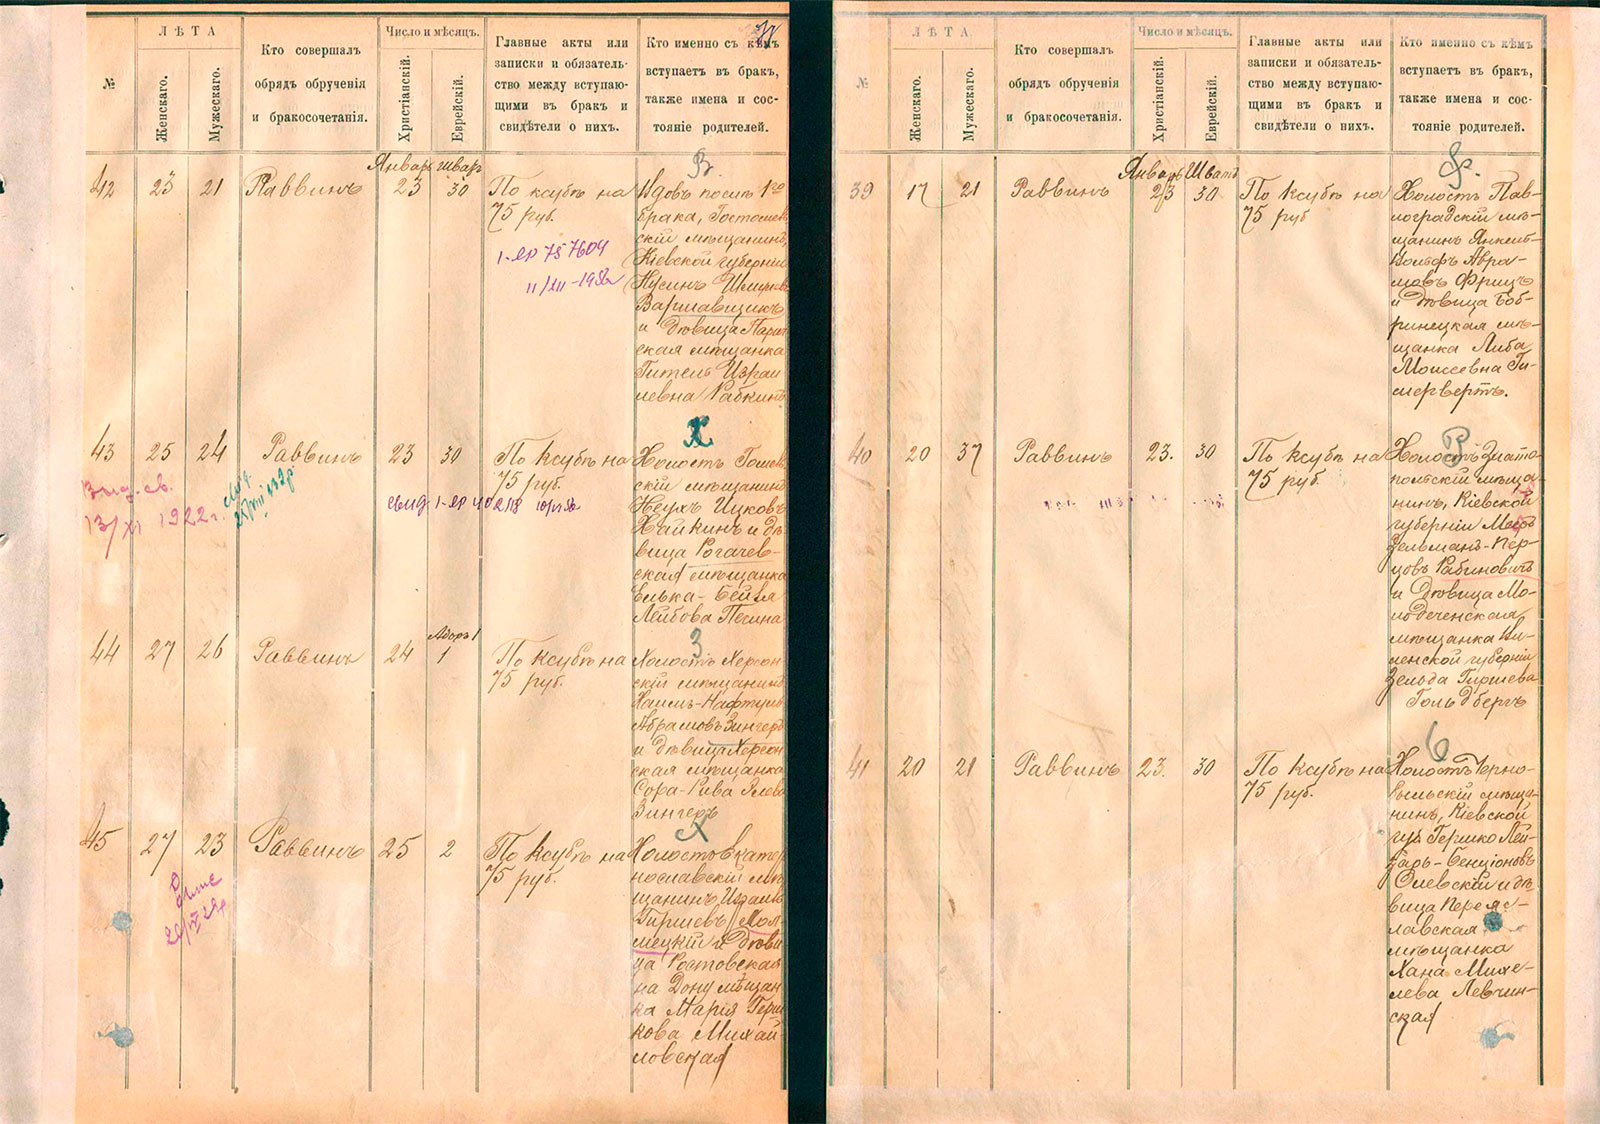 ЛѢТА
№
Женскаго.
Мужескаго.
Кто совершалъ
обрядъ обрученія
и бракосочетанія.
Число и мѣсяцъ.
Христіанскій.
Еврейскій.
Главные акты или
записки и обязатель-
ство между вступаю-
щими въ бракъ и
свидѣтели о нихъ.
Кто именно съ кѣмъ
вступаетъ въ бракъ,
также имена и сос-
тояніе родителей.
Январь
42 23 21 Раввинъ 23 30
По ксубѣ на
75 руб.
В.
Вдовъ послѣ 1го
брака,
скій мѣщанинъ,
Кіевской губерніи
Нусинъ
Варшавщикъ
и Дѣвица
ская мѣщанка
Гитель Израи
левна Рабкинъ
43 25 24 Раввинъ 23 30
По ксубѣ на
75 руб.
Выд. св.
13/XI 1922 г.
Х
Холостъ
скій мѣщанинъ
Ицковъ
Хайкинъ и дѣ
вица Рогачев-
ская мѣщанка
Элька-Бейля
Лейбова Песина
44 27 26 Раввинъ 24 1
Адоръ 1
По ксубѣ на
75 руб.
З
Холостъ Херсон
скій мѣщанинъ
Хаимъ-Нафтулъ
Абрамовъ Зингеръ
и дѣвица Херсон
ская мѣщанка
Сора-Рива
Зингеръ
45 27 23 Раввинъ 25 2
По ксубѣ на
75 руб.
Холостъ Екатер
нославскій мѣ
щанинъ Израиль
Гиршевъ
и Дѣви
ца Ростовская
на Дону мѣщан
ка Марія Герш
кова Михай
ловская
ЛѢТА
№
Женскаго.
Мужескаго.
Кто совершалъ
обрядъ обрученія
и бракосочетанія.
Число и мѣсяцъ.
Христіанскій.
Еврейскій.
Главные акты или
записки и обязатель-
ство между вступаю-
щими въ бракъ и
свидѣтели о нихъ.
Кто именно съ кѣмъ
вступаетъ въ бракъ,
также имена и сос-
тояніе родителей.
Январь Шватъ
39 17 21 Раввинъ 23 30
По ксубѣ на
75 руб
Ф.
Холостъ Пав-
лоградскій мѣ-
щанинъ Янкель-
Вольфъ Авра-
мовъ Фрицъ
и дѣвица Боб-
ринецкая мѣ-
щанка Либа
Моисеевна Ги-
мервертъ.
40 20 37 Раввинъ 23. 30
По ксубѣ на
75 руб.
Холостъ Злато-
польскій мѣща-
нинъ, Кіевской
губерніи
Зельманъ-Пер-
цовъ Рабиновичъ
и Дѣвица Мо-
лодеченская
мѣщанка Ви-
ленской губерніи
Зельда Гиршева
Гольдбергъ
41 20 21 Раввинъ 23. 30
По ксубѣ на
75 руб.
Холостъ Черно-
быльскій мѣща-
нинъ, Кіевской
губ. Гершко Лей-
зарь-Бенціоновъ
Олевскій и дѣ-
вица Переяс-
лавская
мѣщанка
Хана Михе-
лева Левчин-
ская